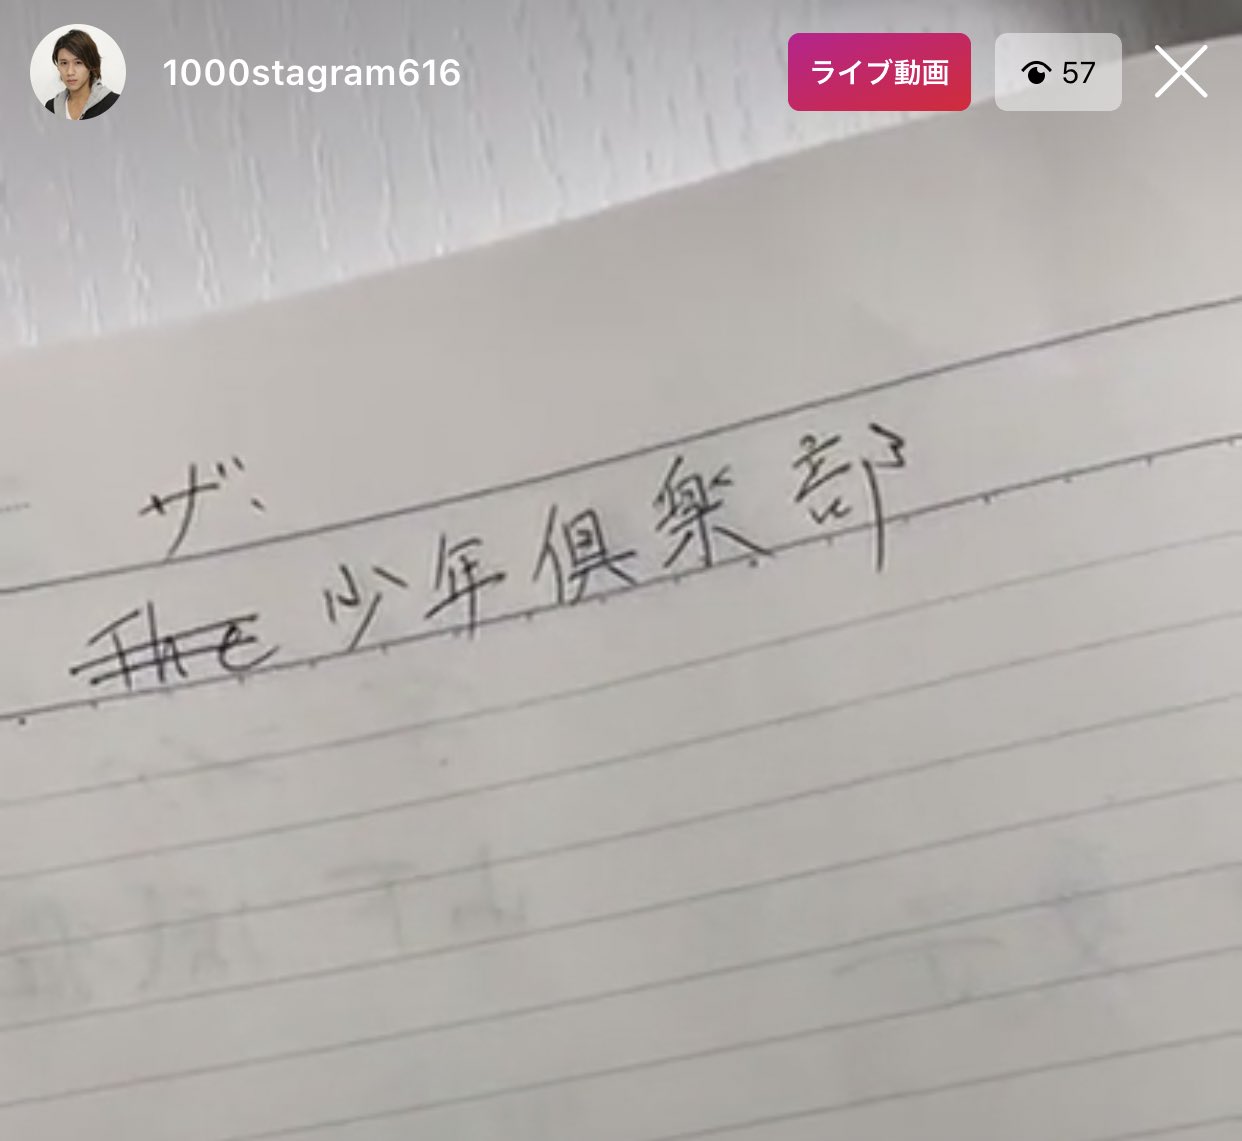 1000stagram616
ライブ動画
57
ザ・
The 少年倶楽部